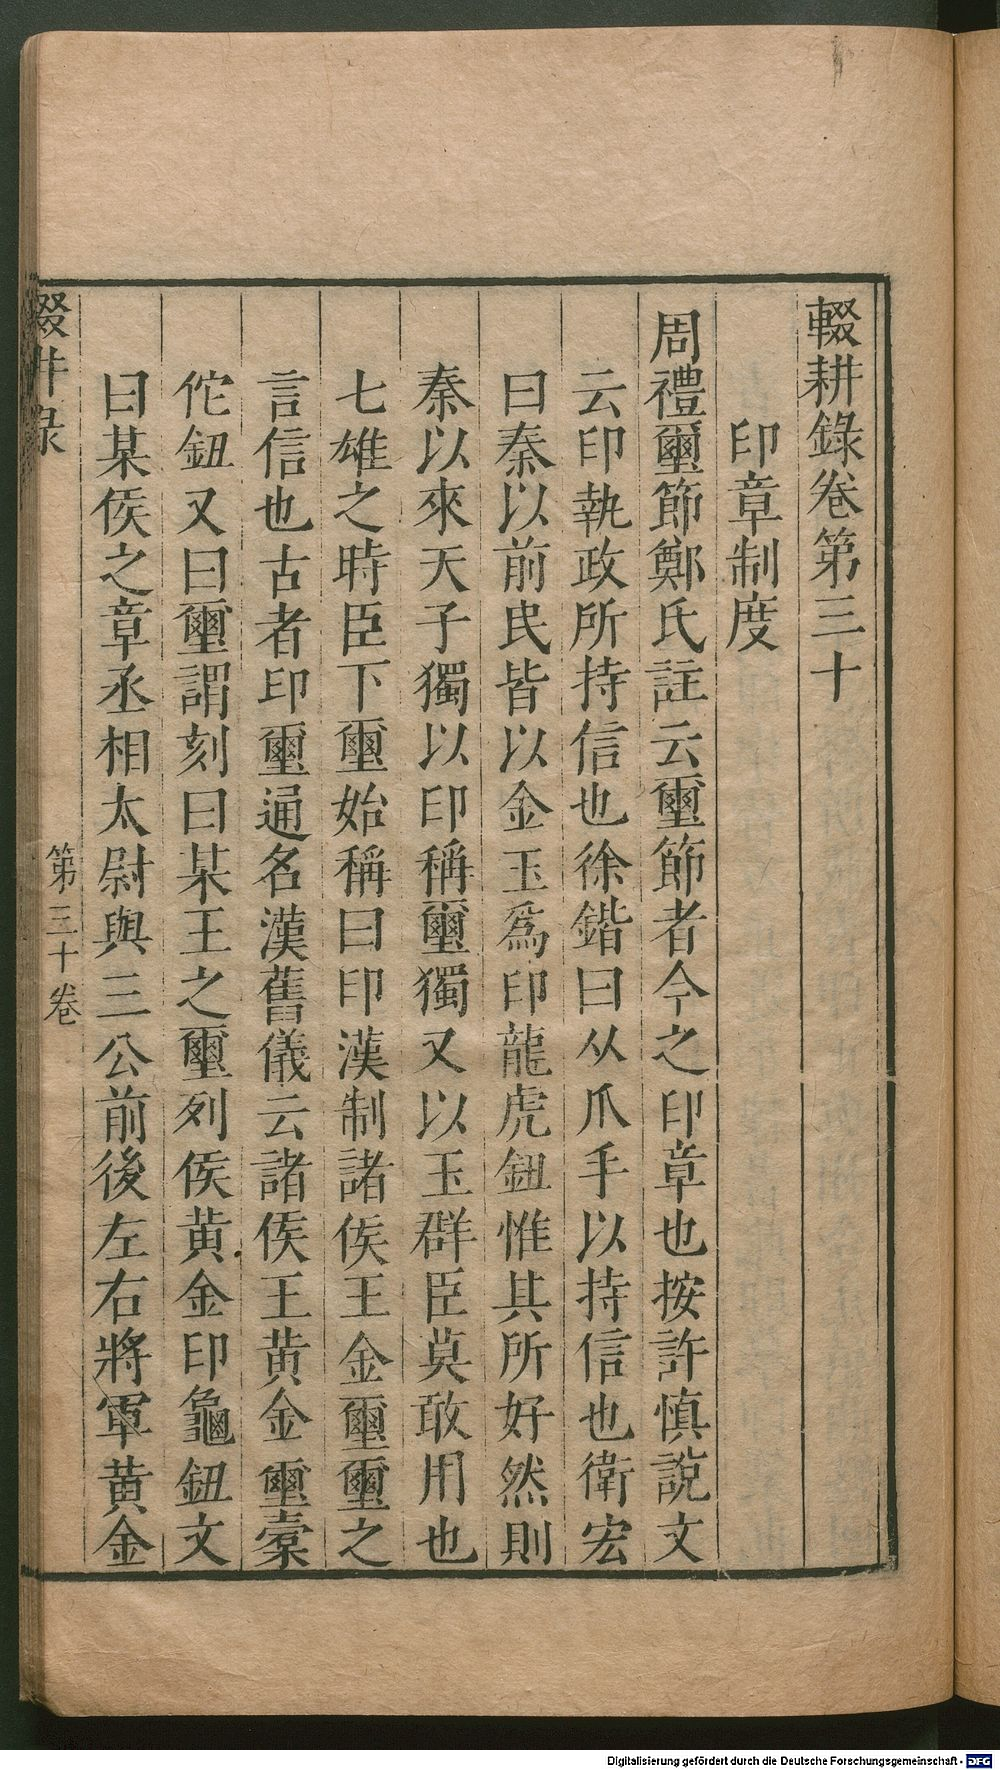 輟耕錄卷第三十
印章制度
周禮璽節鄭氏註云璽節者今之印章也按許慎說文
云印執政所持信也徐鍇曰从爪手以持信也衛宏
曰秦以前民皆以金玉爲印龍虎鈕惟其所好然則
秦以來天子獨以印稱璽獨又以玉群臣莫敢用也
七雄之時臣下璽始稱曰印漢制諸侯王金璽璽之
言信也古者印璽通名漢舊儀云諸侯王黃金璽橐
佗鈕又曰璽謂刻曰某王之璽列侯黃金印龜鈕文
曰某侯之章丞相太尉與三公前後左右將軍黃金
輟耕录
第三十卷
Digitalisierung gefördert durch die Deutsche Forschungsgemeinschaft - DFG